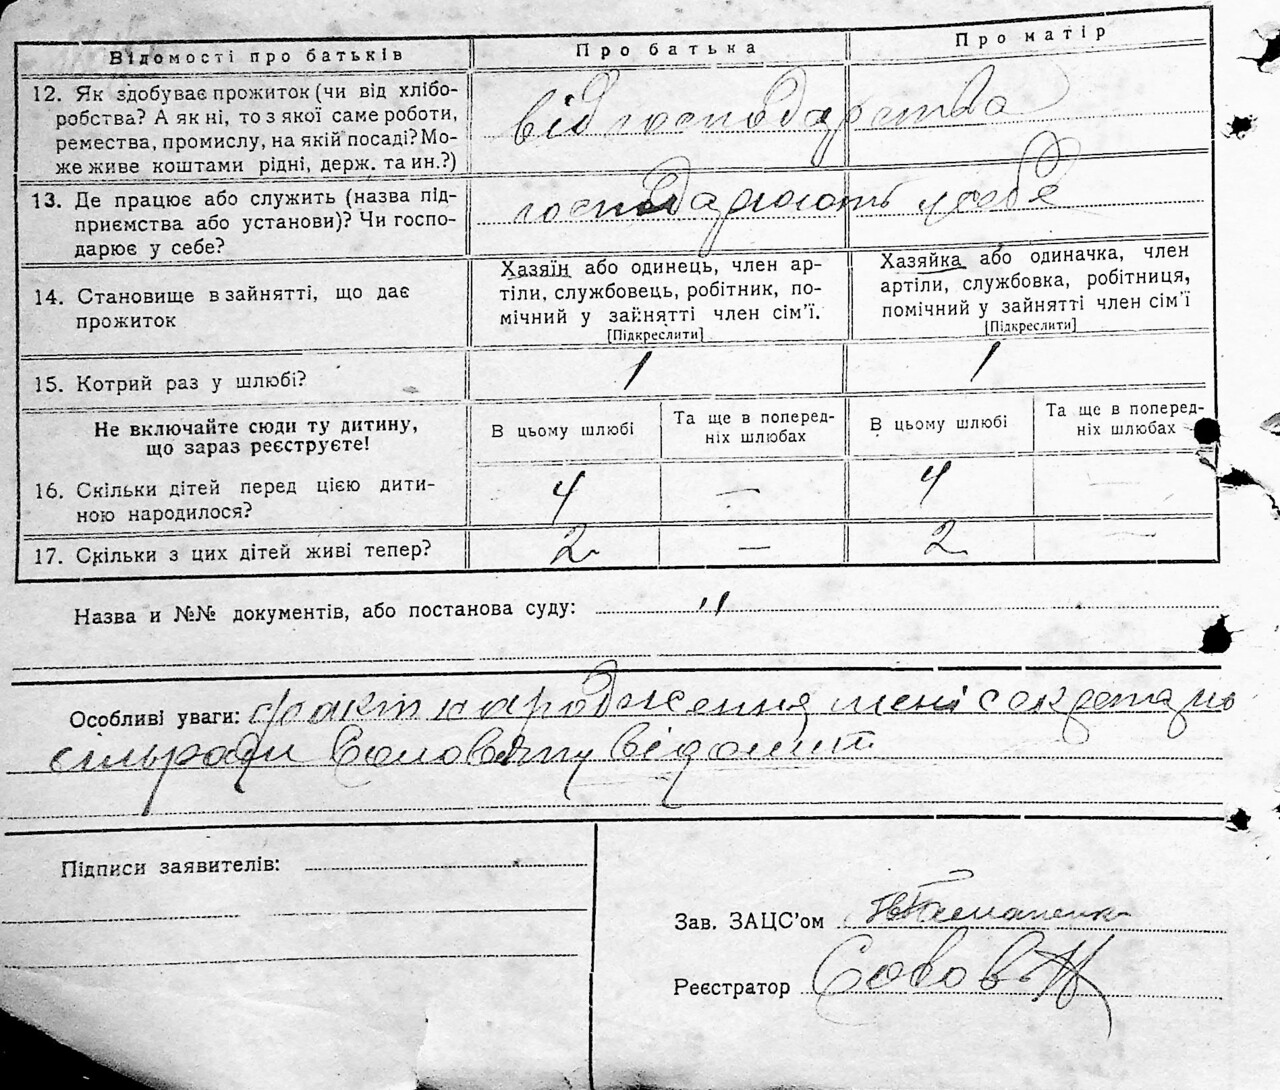 Відомості про батьків Про батька Про матір
12. Як здобуває прожиток (чи від хлібо-
робства? А як ні, то з якої саме роботи,
ремества, промислу, на якій посаді? Мо-
же живе коштами рідні, держ. та ин.?)
від господарства
13. Де працює або служить (назва під-
приємства або установи)? Чи госпо-
дарює у себе?
господарюють у себе
14. Становище в зайнятті, що дає
прожиток
Хазяїн або одинець, член ар-
тіли, службовець, робітник, по-
мічний у зайнятті член сім'ї.
[Підкреслити]
Хазяйка або одиначка, член
артіли, службовка, робітниця,
помічний у зайнятті член сім'ї
[Підкреслити]
15. Котрий раз у шлюбі? 1 1
Не включайте сюди ту дитину,
що зараз реєструєте!
В цьому шлюбі
Та ще в поперед-
ніх шлюбах
В цьому шлюбі
Та ще в поперед-
ніх шлюбах
16. Скільки дітей перед цією дити-
ною народилося?
4 — 4 —
17. Скільки з цих дітей живі тепер? 2 — 2 —
Назва и №№ документів, або постанова суду:
Особливі уваги: факт народження мені секретарю
сільради відомий
Підписи заявителів:
Зав. ЗАЦС'ом
Реєстратор